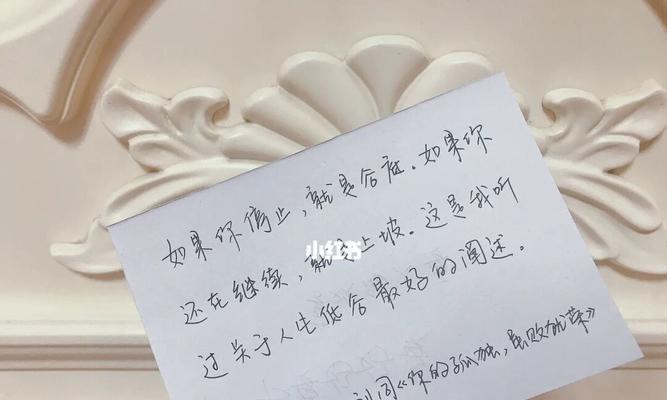 如果你停止，就是谷底。如果你
还在继续，就是上坡。这是我听
过关于人生低谷最好的阐述。
刘同《你的孤独，虽败犹荣》
小红书